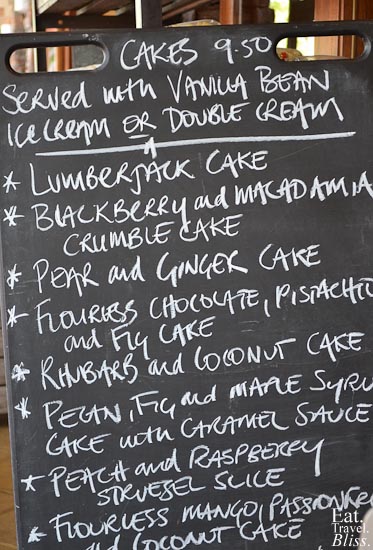 CAKES 9.50
SERVED with VANILLA BEAN
ICE CREAM OR DOUBLE CREAM
* LUMBERJACK CAKE
* BLACKBERRY and MACADAMIA
CRUMBLE CAKE
* PEAR and GINGER CAKE
* FLOURLESS CHOCOLATE, PISTACHIO
and FIG CAKE
* RHUBARB and COCONUT CAKE
* PECAN, FIG and MAPLE SYRU
CAKE with CARAMEL SAUCE
* PEACH and RASPBERRY
STRUESEL SLICE
* FLOURLESS MANGO, PASSIONFRU
and COCONUT CAKE
Eat.
Travel.
Bliss.